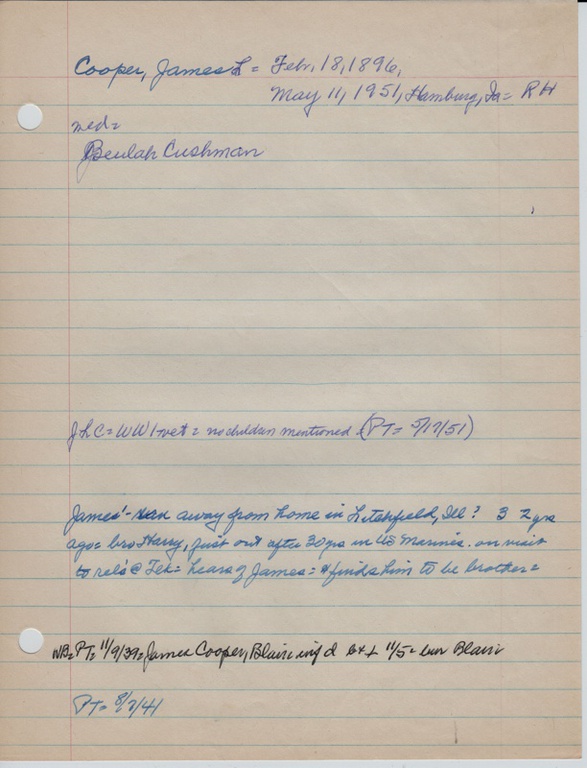 Cooper, James L = Feb. 18, 1896,
May 11, 1951, Hamburg, Ia = RH
med =
Beulah Cushman
JLC = WW1 vet = no children mentioned (PT = 5/17/51)
James' - ran away from home in Litchfield, Ill? 32 yrs
ago = bro Harry, just out after 30 yrs in US Marines. on visit
to rels @ Tek = hears of James = & finds him to be brother =
NB = PT = 11/9/39 = James Cooper, Blair inj'd 11/5 = Blair
PT = 8/7/41